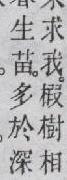 求我。假樹相
生苗。多於深